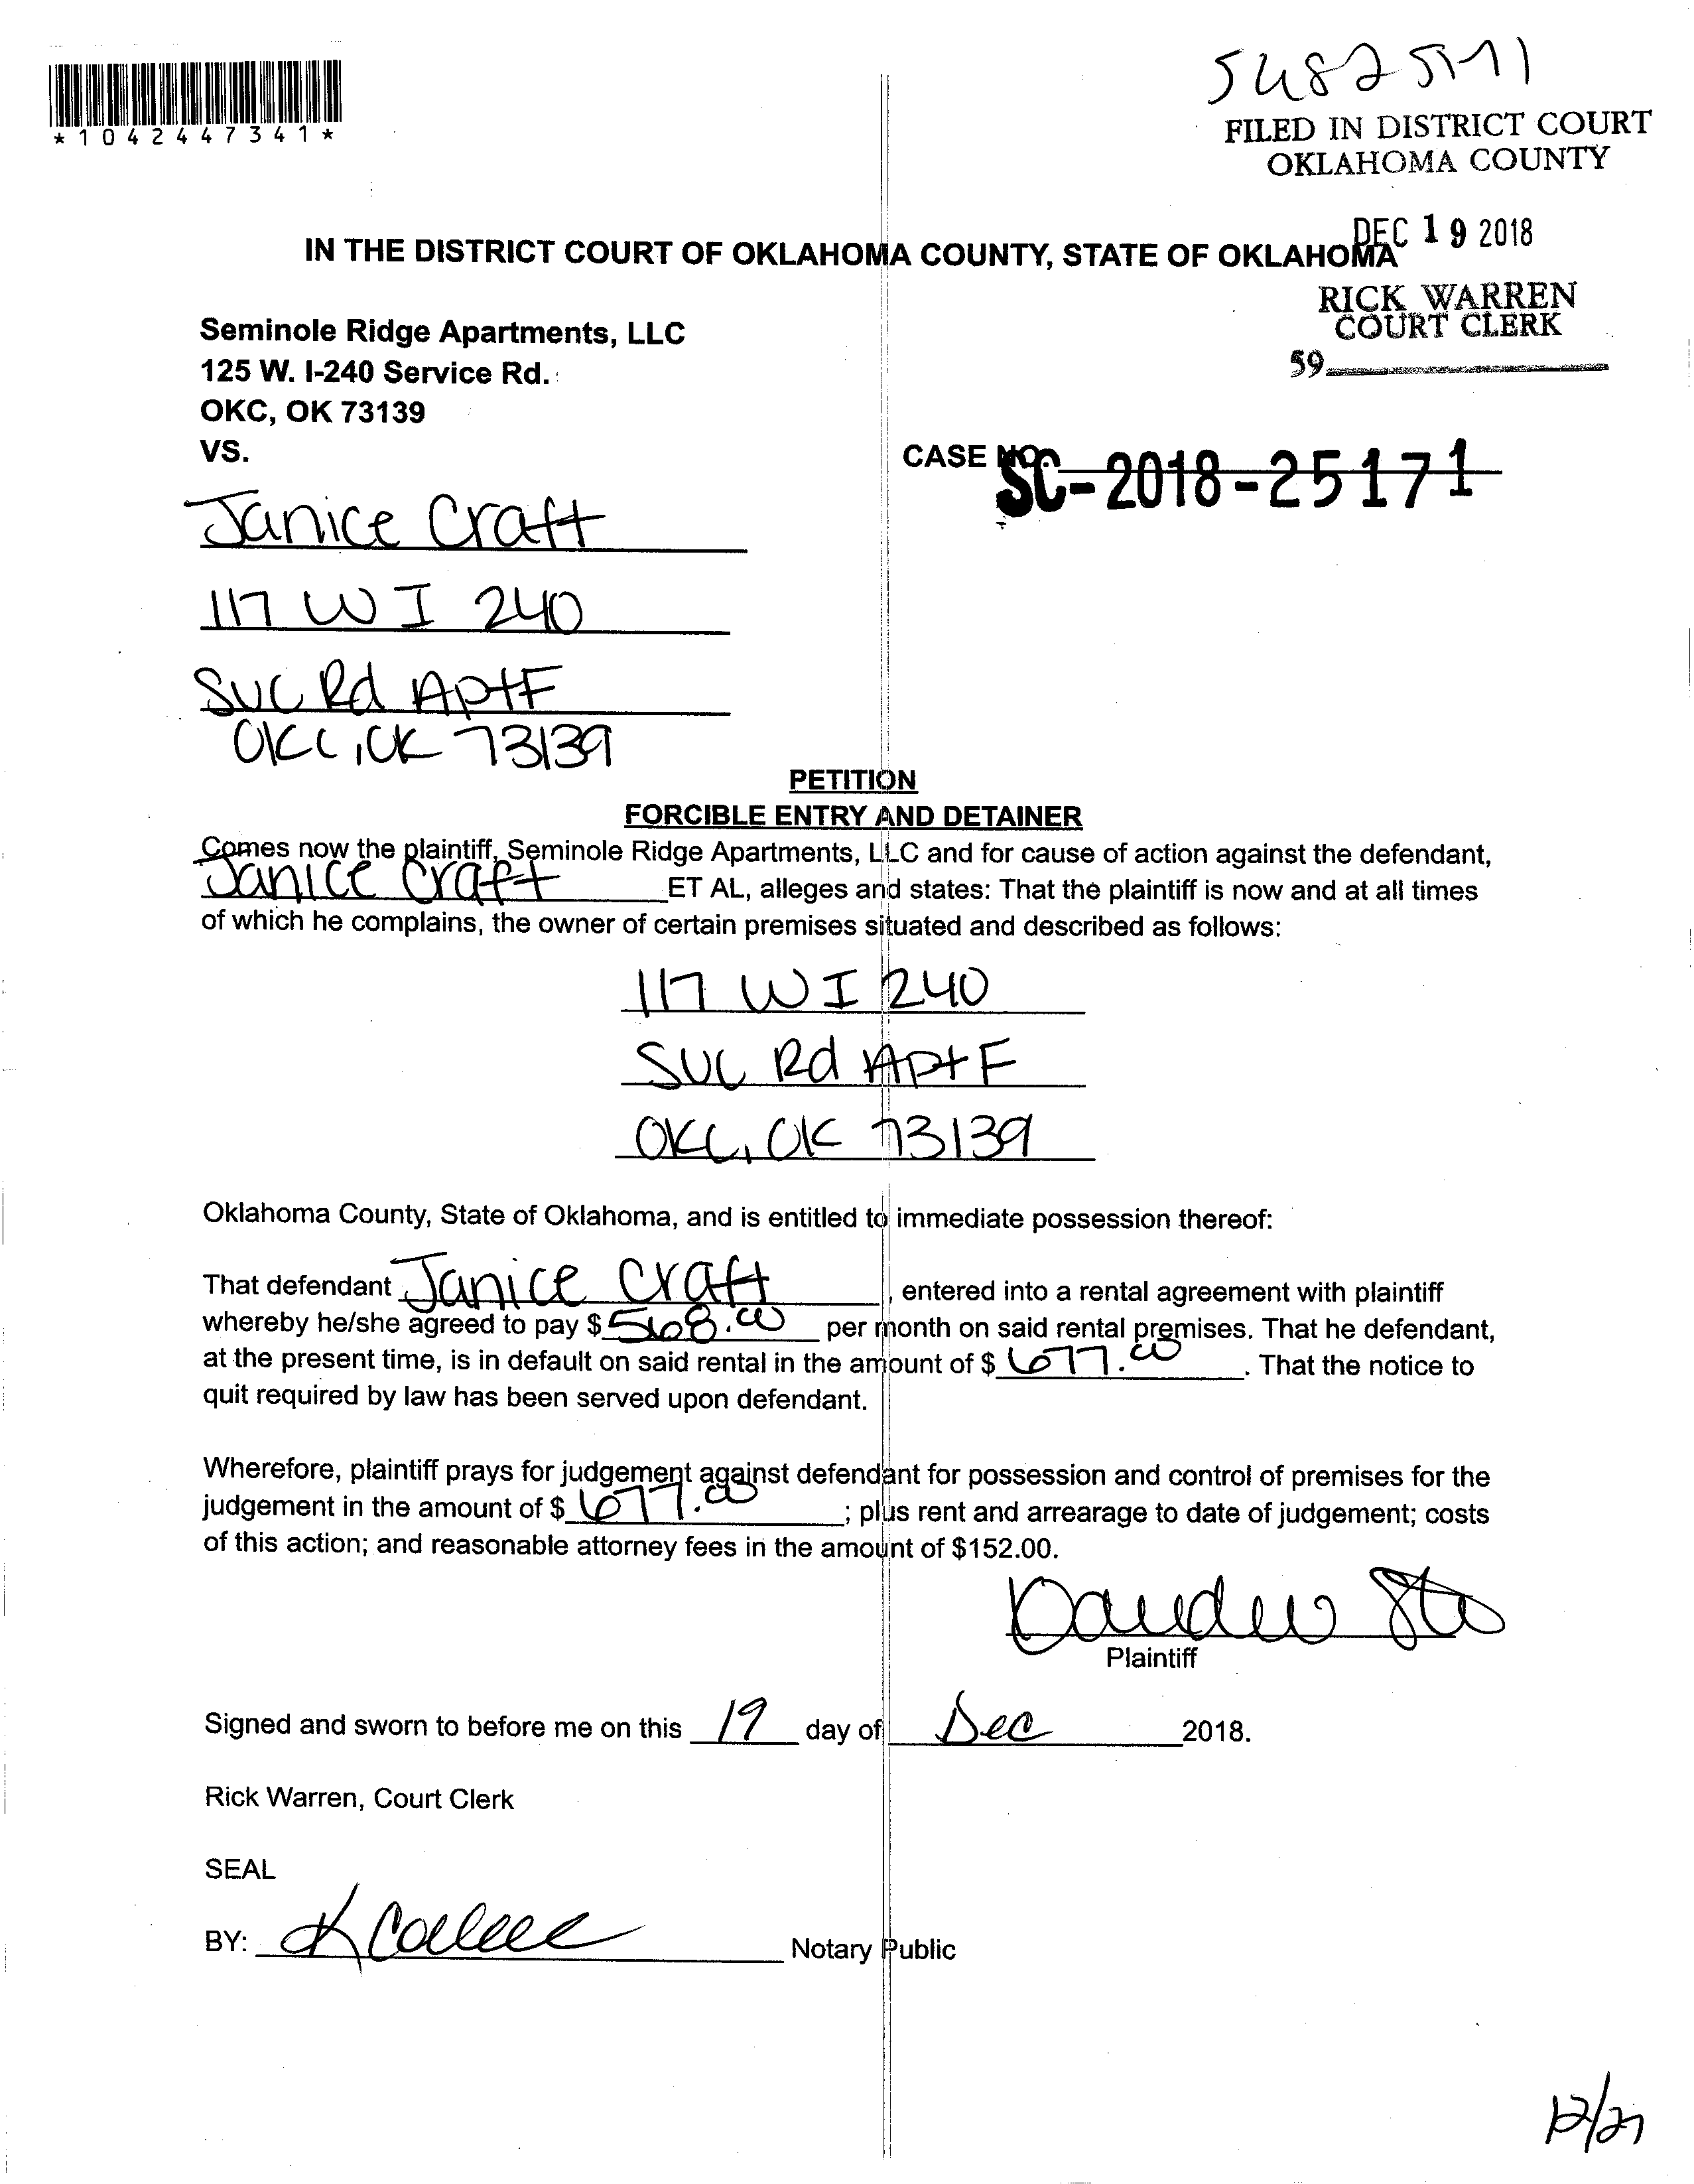 *1042447341*
FILED IN DISTRICT COURT
OKLAHOMA COUNTY
DEC 19 2018
IN THE DISTRICT COURT OF OKLAHOMA COUNTY, STATE OF OKLAHOMA
RICK WARREN
COURT CLERK
59
Seminole Ridge Apartments, LLC
125 W. I-240 Service Rd.
OKC, OK 73139
VS.
CASE NO. SC-2018-25171
Janice Craft
117 W I 240
SVC Rd Apt F
OKC, OK 73139
PETITION
FORCIBLE ENTRY AND DETAINER
Comes now the plaintiff, Seminole Ridge Apartments, LLC and for cause of action against the defendant,
Janice Craft ET AL, alleges and states: That the plaintiff is now and at all times
of which he complains, the owner of certain premises situated and described as follows:
117 W I 240
SVC Rd Apt F
OKC, OK 73139
Oklahoma County, State of Oklahoma, and is entitled to immediate possession thereof:
That defendant Janice Craft, entered into a rental agreement with plaintiff
whereby he/she agreed to pay $ 568.00 per month on said rental premises. That he defendant,
at the present time, is in default on said rental in the amount of $ 677.00. That the notice to
quit required by law has been served upon defendant.
Wherefore, plaintiff prays for judgement against defendant for possession and control of premises for the
judgement in the amount of $ 677.00; plus rent and arrearage to date of judgement; costs
of this action; and reasonable attorney fees in the amount of $152.00.
Plaintiff
Signed and sworn to before me on this 19 day of Dec 2018.
Rick Warren, Court Clerk
SEAL
BY: Notary Public